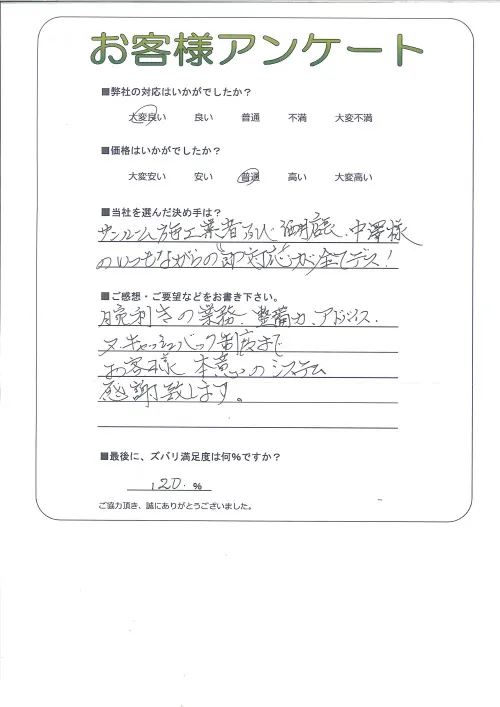 お客様アンケート
■弊社の対応はいかがでしたか？
大変良い 良い 普通 不満 大変不満
■価格はいかがでしたか？
大変安い 安い 普通 高い 大変高い
■当社を選んだ決め手は？
サンルーム施工業者 店長、中澤様
のいつもながらの即対応が全てデス！
■ご感想・ご要望などをお書き下さい。
腕利きの業務、整備力、アドバイス、
又、キャッシュバック制度まで
お客様本意のシステム
感謝致します。
■最後に、ズバリ満足度は何%ですか？
120.%
ご協力頂き、誠にありがとうございました。